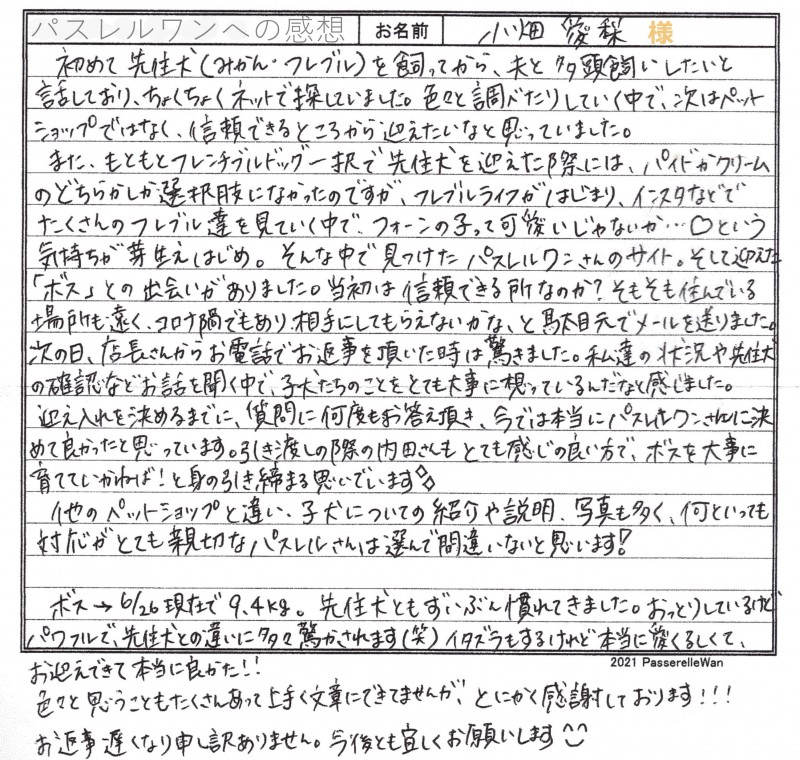 パスレルワンへの感想 お名前 小畑 愛梨 様
初めて先住犬(みかん・フレブル)を飼ってから、夫と多頭飼いしたいと
話しており、ちょくちょくネットで探していました。色々と調べたりしていく中で、次はペット
ショップではなく、信頼できるところから迎えたいなと思っていました。
また、もともとフレンチブルドッグ一択で先住犬を迎えた際には、パイドかクリーム
のどちらかしか選択肢になかったのですが、フレブルライフがはじまり、インスタなどで
たくさんのフレブル達を見ていく中で、フォーンの子って可愛いじゃないか…♡という
気持ちが芽生えはじめ。そんな中で見つけたパスレルワンさんのサイト。そして迎えた
「ボス」との出会いがありました。当初は信頼できる所なのか?そもそも住んでいる
場所も遠く、コロナ禍でもあり、相手にしてもらえないかな、と駄目元でメールを送りました。
次の日、店長さんからお電話でお返事を頂いた時は驚きました。私達の状況や先住犬
の確認などお話を聞く中で、子犬たちのことをとても大事に想っているんだなと感じました。
迎え入れを決めるまでに、質問に何度もお答え頂き、今では本当にパスレルワンさんに決
めて良かったと思っています。引き渡しの際の内田さんもとても感じの良い方で、ボスを大事に
育てていかねば!と身の引き締まる思いでいます
他のペットショップと違い、子犬についての紹介や説明、写真も多く、何といっても
対応がとても親切なパスレルさんは選んで間違いないと思います!
ボス→6/26現在で9.4kg。先住犬ともずいぶん慣れてきました。おっとりしているけど
パワフルで、先住犬との違いに多々驚かされます(笑)イタズラもするけれど本当に愛くるしくて、
2021 PasserelleWan
お迎えできて本当に良かた!!
色々と思うこともたくさんあって上手く文章にできてませんが、とにかく感謝しております!!!
お返事遅くなり申し訳ありません。今後とも宜しくお願いします